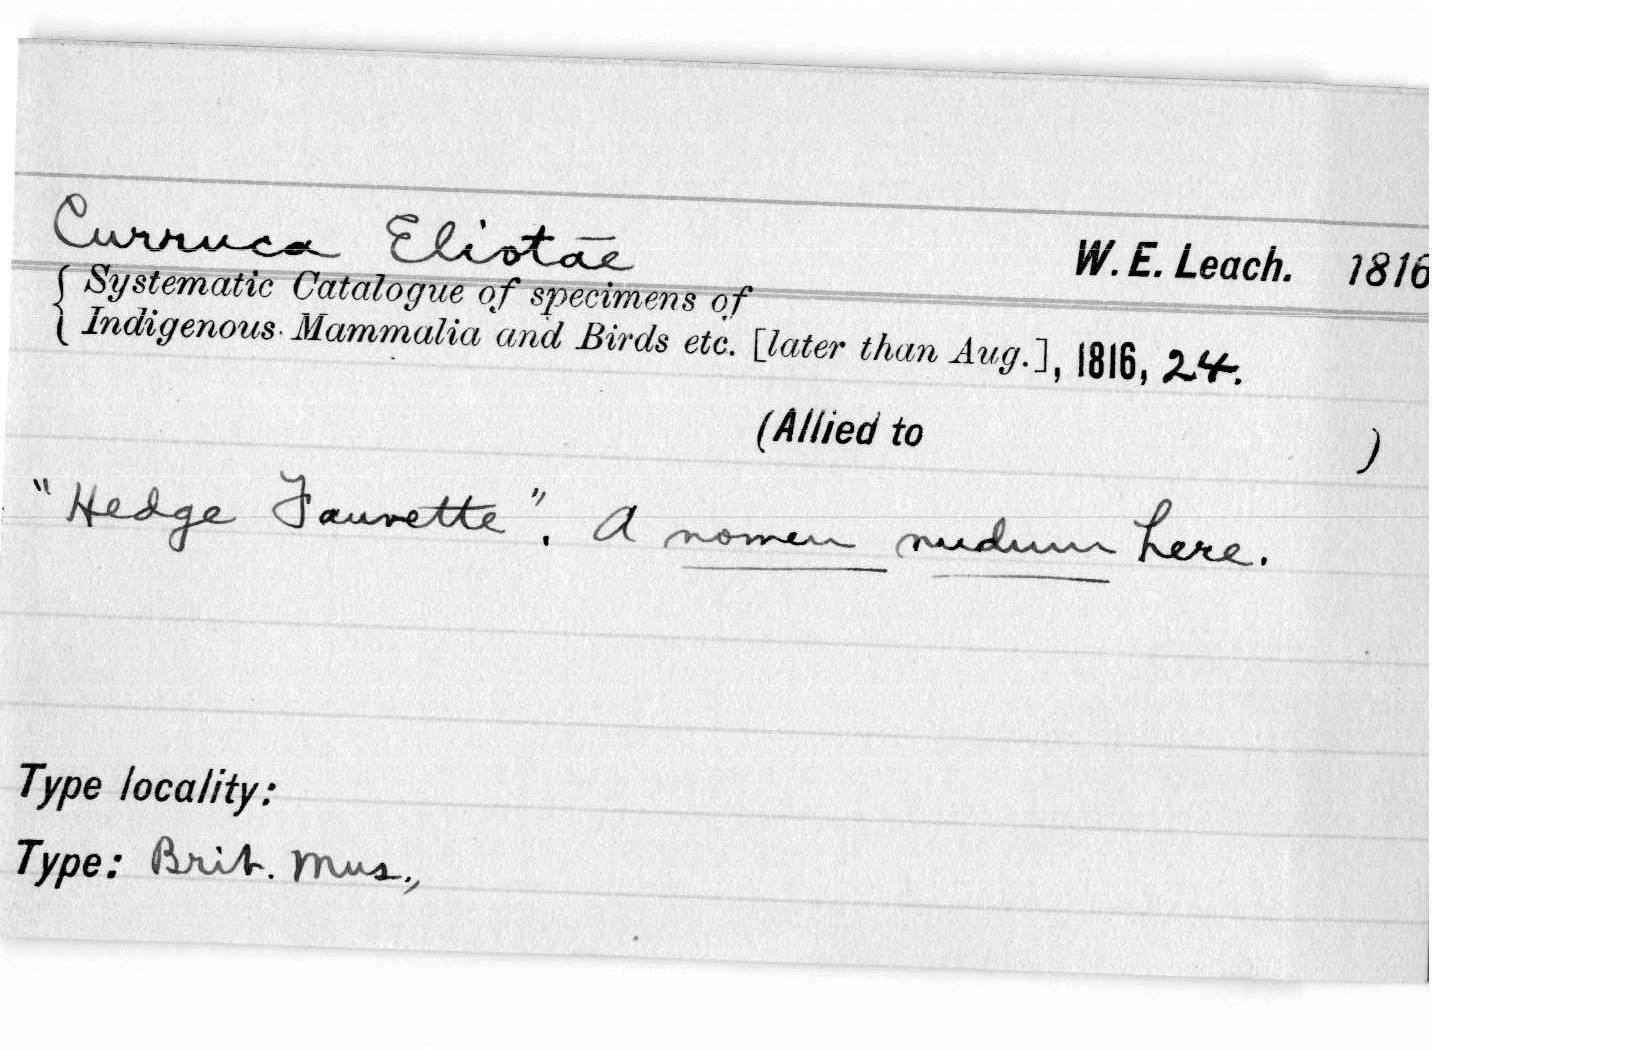 Curruca Eliotæ W. E. Leach. 1816
{ Systematic Catalogue of specimens of
Indigenous Mammalia and Birds etc. [later than Aug.], 1816, 24.
(Allied to )
"Hedge Fauvette". A nomen nudum here.
Type locality:
Type: Brit. Mus.,